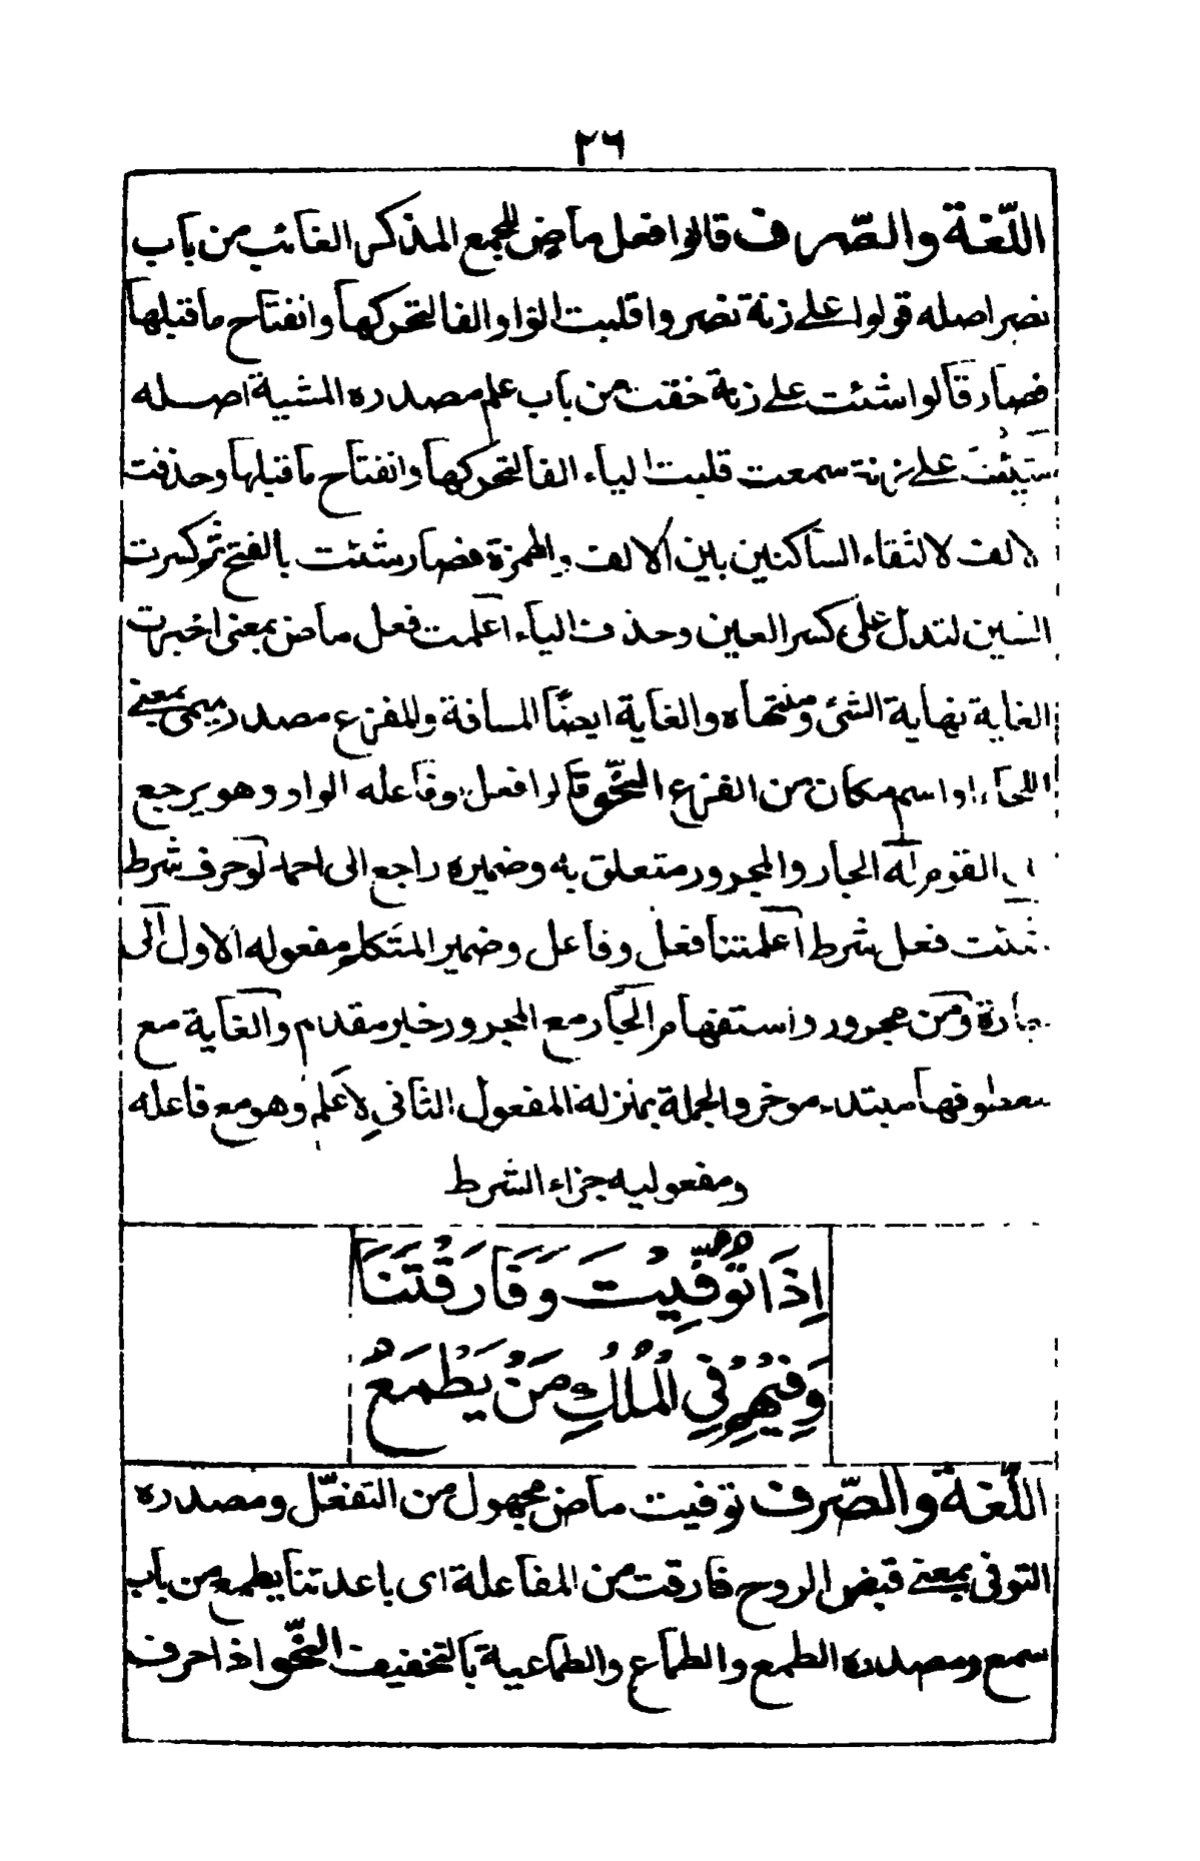 ٢٦
اللّغة والصّرف قالوا فعل ماض للجمع المذكر الغائب من باب
نصر اصله قولوا على زنة نصروا قلبت الواو الفا لتحركها وانفتاح ما قبلها
فصار قالوا شئت على زنة خفت من باب علم مصدره المشية اصله
شيئت على زنة سمعت قلبت الياء الفا لتحركها وانفتاح ما قبلها وحذفت
الالف لالتقاء الساكنين بين الالف والهمزة فصار شئت بالفتح ثم كسرت
الشين لتدل على كسر العين وحذف الياء اعلمت فعل ماض بمعنى اخبرت
الغاية نهاية الشئ ومنتهاه والغاية ايضًا المسافة والمفزع مصدر ميمى بمعنى
اللجاء او اسم مكان من الفزع النحّو قالوا فعل وفاعله الواو وهو يرجع
القوم له الجار والمجرور متعلق به وضميره راجع الى احمد لو حرف شرط
شئت فعل شرط اعلمتنا فعل وفاعل وضمير المتكلم مفعوله الاول الى
جارة ومن مجرور واستفهام الجار مع المجرور خبر مقدم والغاية مع
معطوفها مبتدء موخر والجملة بمنزلة المفعول الثاني لِاَعلم وهو مع فاعله
ومفعوليه جزاء الشرط
اِذَا تُوُفِّيْتَ وَفَارَقْتَنَا
وَفِيْهِمْ فِي الْمُلْكِ مَنْ يَطْمَعُ
اللّغة والصّرف توفيت ماض مجهول من التفعّل ومصدره
التوفى بمعنى قبض الروح فارقت من المفاعلة اى باعدتنا يطمع من باب
سمع ومصدره الطمع والطماع والطماعية بالتخفيف النحّو اذا حرف